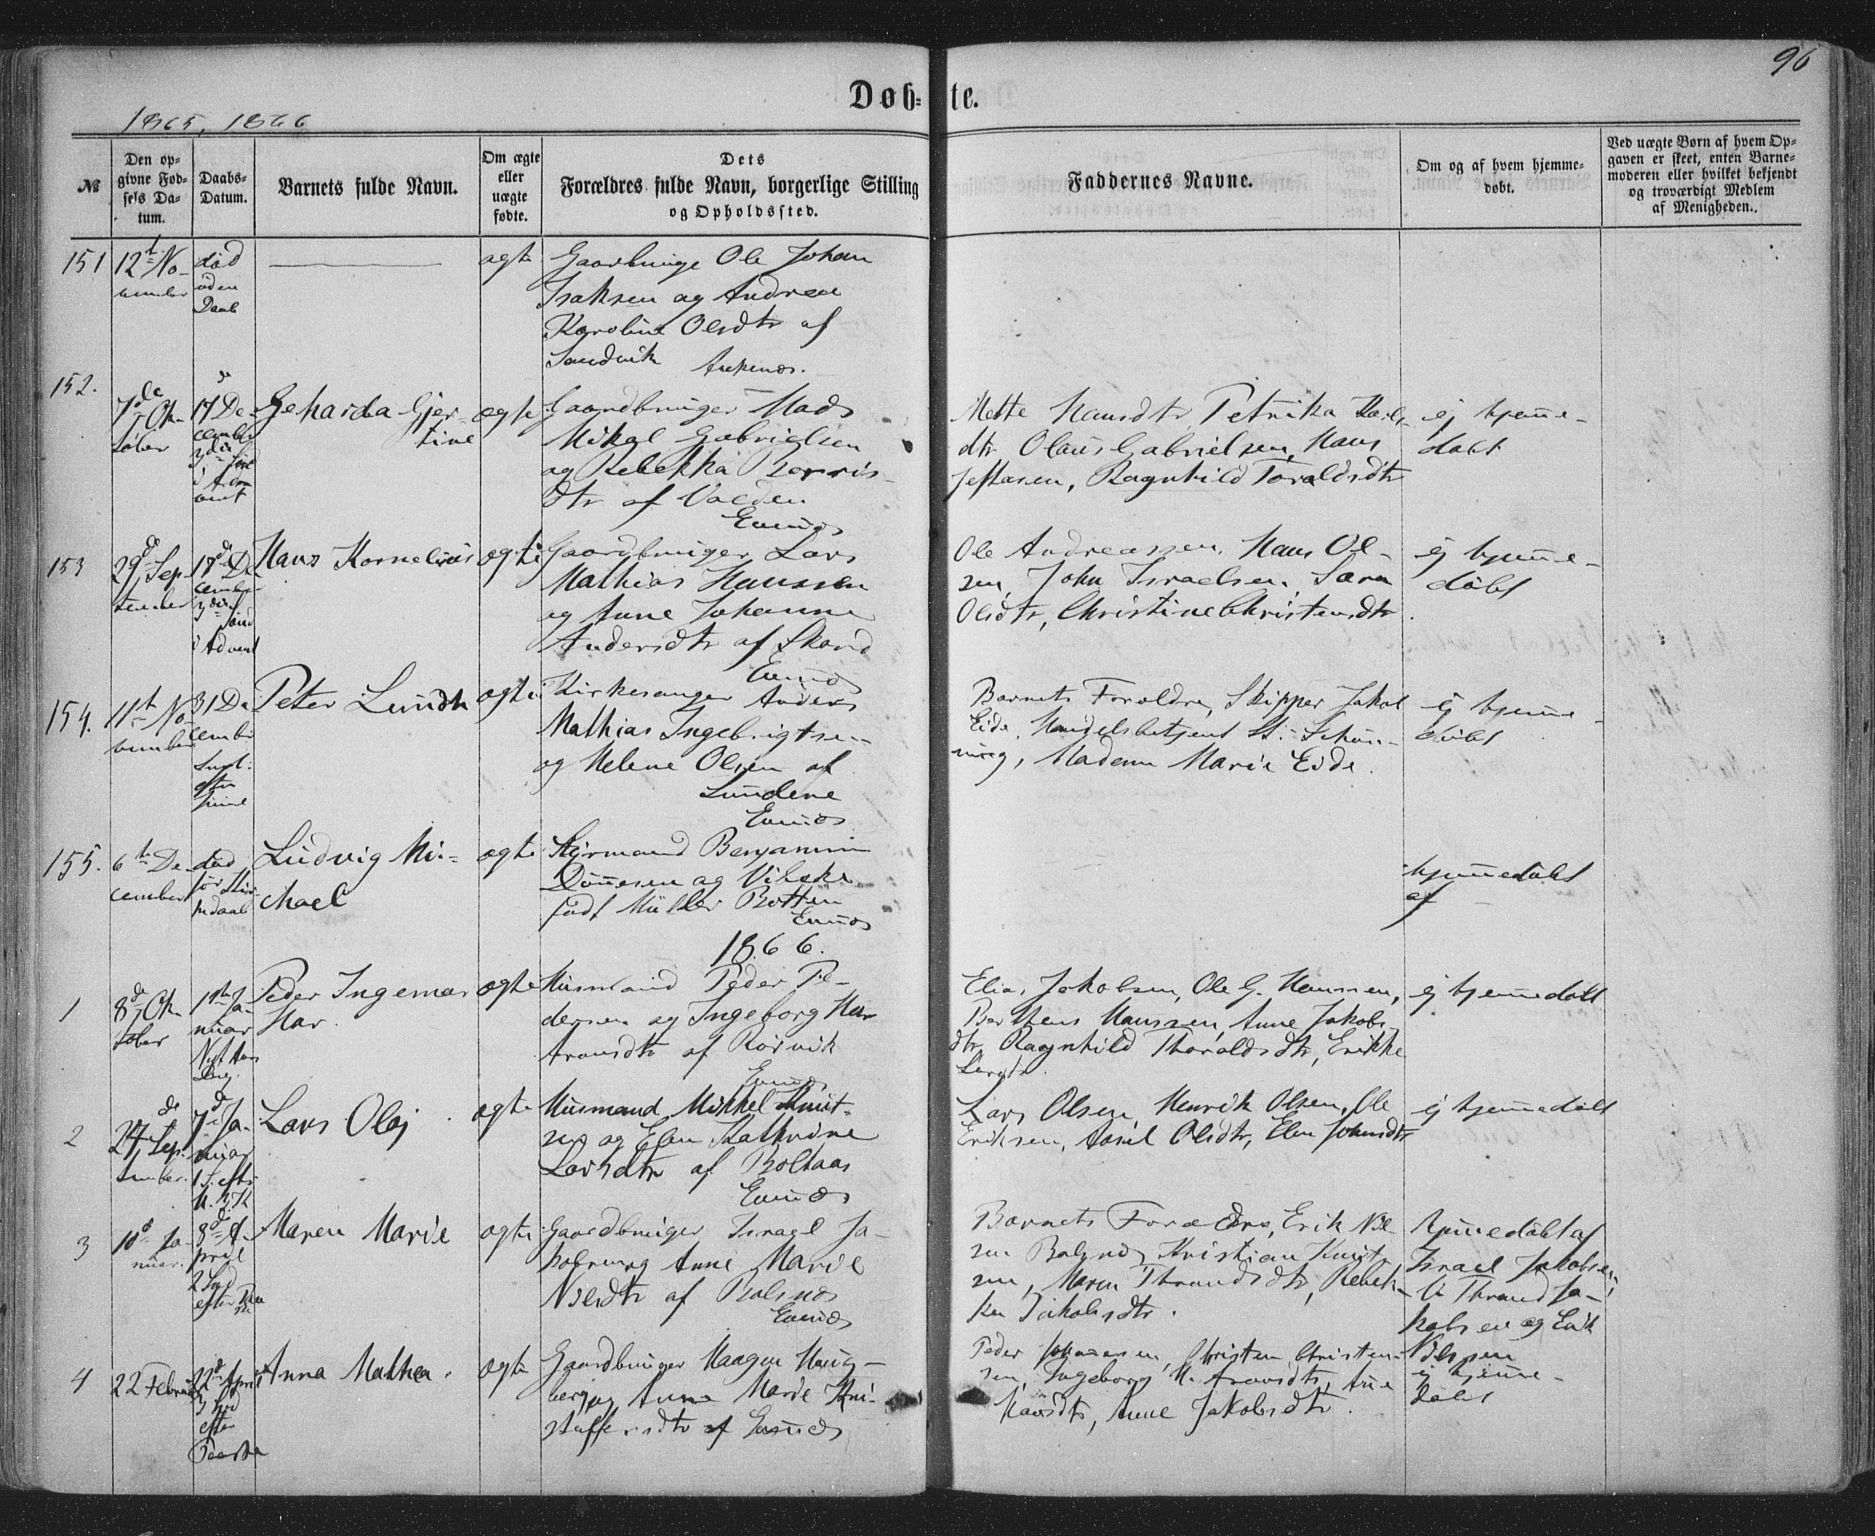 96
Døb- te.
1865, 1866
№
Den op-
givne Fød-
sels Da-
tum.
Daabs-
Datum.
Barnets fulde Navn.
Om ægte
eller
uægte
fødte.
Dets
Forældres fulde Navn, borgerlige Stilling
og Opholdssted.
Faddernes Navne.
Om og af hvem hjemme-
døbt.
Ved uægte Børn af hvem Op-
gaven er skeet, enten Barne-
moderen eller hvilket bekjendt
og troværdigt Medlem
af Menigheden.
151
12te No-
vember
død
uden
Daab
ægte
Gaardbruger Ole Johan
Isaksen og Andrea
Karoline Olsdtr af
Sandvik Ankenes.
152.
7de Ok-
tober
17de De-
cember
3die
i Advent
Geharda Gjer-
tine
ægte
Gaardbruger Mads
Mikal Gabrielsen
og Rebekka
dtr af Volden
Evenæs
Mette Hansdtr, Petrika
dtr Olaus Gabrielsen, Hans
Jeftasen, Ragnhild Toraldsdtr
ej hjemme-
døbt
153
29de Sep-
tember
17de De-
cember
3die Sønd
i Advent
Hans Kornelius
ægte
Gaardbruger Lars
Mathias Hanssen
og Anne Johanna
Andersdtr af
Evenæs
Ole Andreassen, Hans Ol-
sen, John Israelsen, Sara
Olsdtr, Christine Christensdtr
ej hjemme-
døbt
154.
11te No-
vember
31 De-
cember
Sønd.
efter
Juul
Peter Lundh
ægte
Kirkesanger Anders
Mathias Ingebrigtsen
og Helene Olsen af
Lundene
Evenæs
Barnets Forældre, Skipper Jakob
Eide, Handelsbetjent St. Schøn-
ning, Madam Marie Eide.
ej hjemme-
døbt
155.
6te De-
cember
død
før Kir-
kedaab
Ludvig Mi-
chael
ægte
Styrmand Benjamin
Dønnesen og Vibeke
født Müller Botten
Evenæs
hjemmedøbt
af
1866.
1
8de Ok-
tober
1ste Ja-
nuar
Nyt Aars
Dag
Peder Ingemar
Har.
ægte
Husmand Peder Pe-
dersen og Ingeborg
Aronsdtr af Rørvik
Evenæs
Elias Jakobsen, Ole G. Hanssen,
Hanssen, Anne Jakobs
dtr, Ragnhild Thoraldsdtr, Erikke
Larsdtr.
ej hjemmedøbt
2
24de Sep-
tember.
7de Ja-
nuar
1 S. efter
H. 3 K
Lars Olaj
ægte
Husmand Mikkel Knut-
sen og Elen Kathrine
Larsdtr af Boltaas
Evenæs
Lars Olsen, Henrik Olsen, Ole
Eriksen, Olsdtr, Elen Johnsdtr
ej hjemmedøbt
3
10de Ja-
nuar.
8de A-
pril
2 Sønd
efter Paa
ske
Maren Marie
ægte
Gaardbruger Israel Ja-
kobsen og Anne Marie
Nilsdtr af Balsnes
Evenæs
Barnets Forældre, Erik Nil
sen Balsnes, Kristian Knut
sen, Maren Throndsdtr, Rebek-
ka Jakobsdtr.
hjemmedøbt af
Israel Jakobsen,
Thrond Ja-
kobsen og Erik
Nilssen
4
22 Februar
22de April
3 Sønd
efter
Paaske
Anna Mathea.
ægte
Gaardbruger Haagen Haug-
berg og Anne Marie Kri-
stoffersdtr af Evenæs
Peder Johannesen, Christen Christen-
sen, Ingeborg H. Aronsdtr, Ane
Hansdtr, Anne Jakobsdtr.
ej hjemme-
døbt